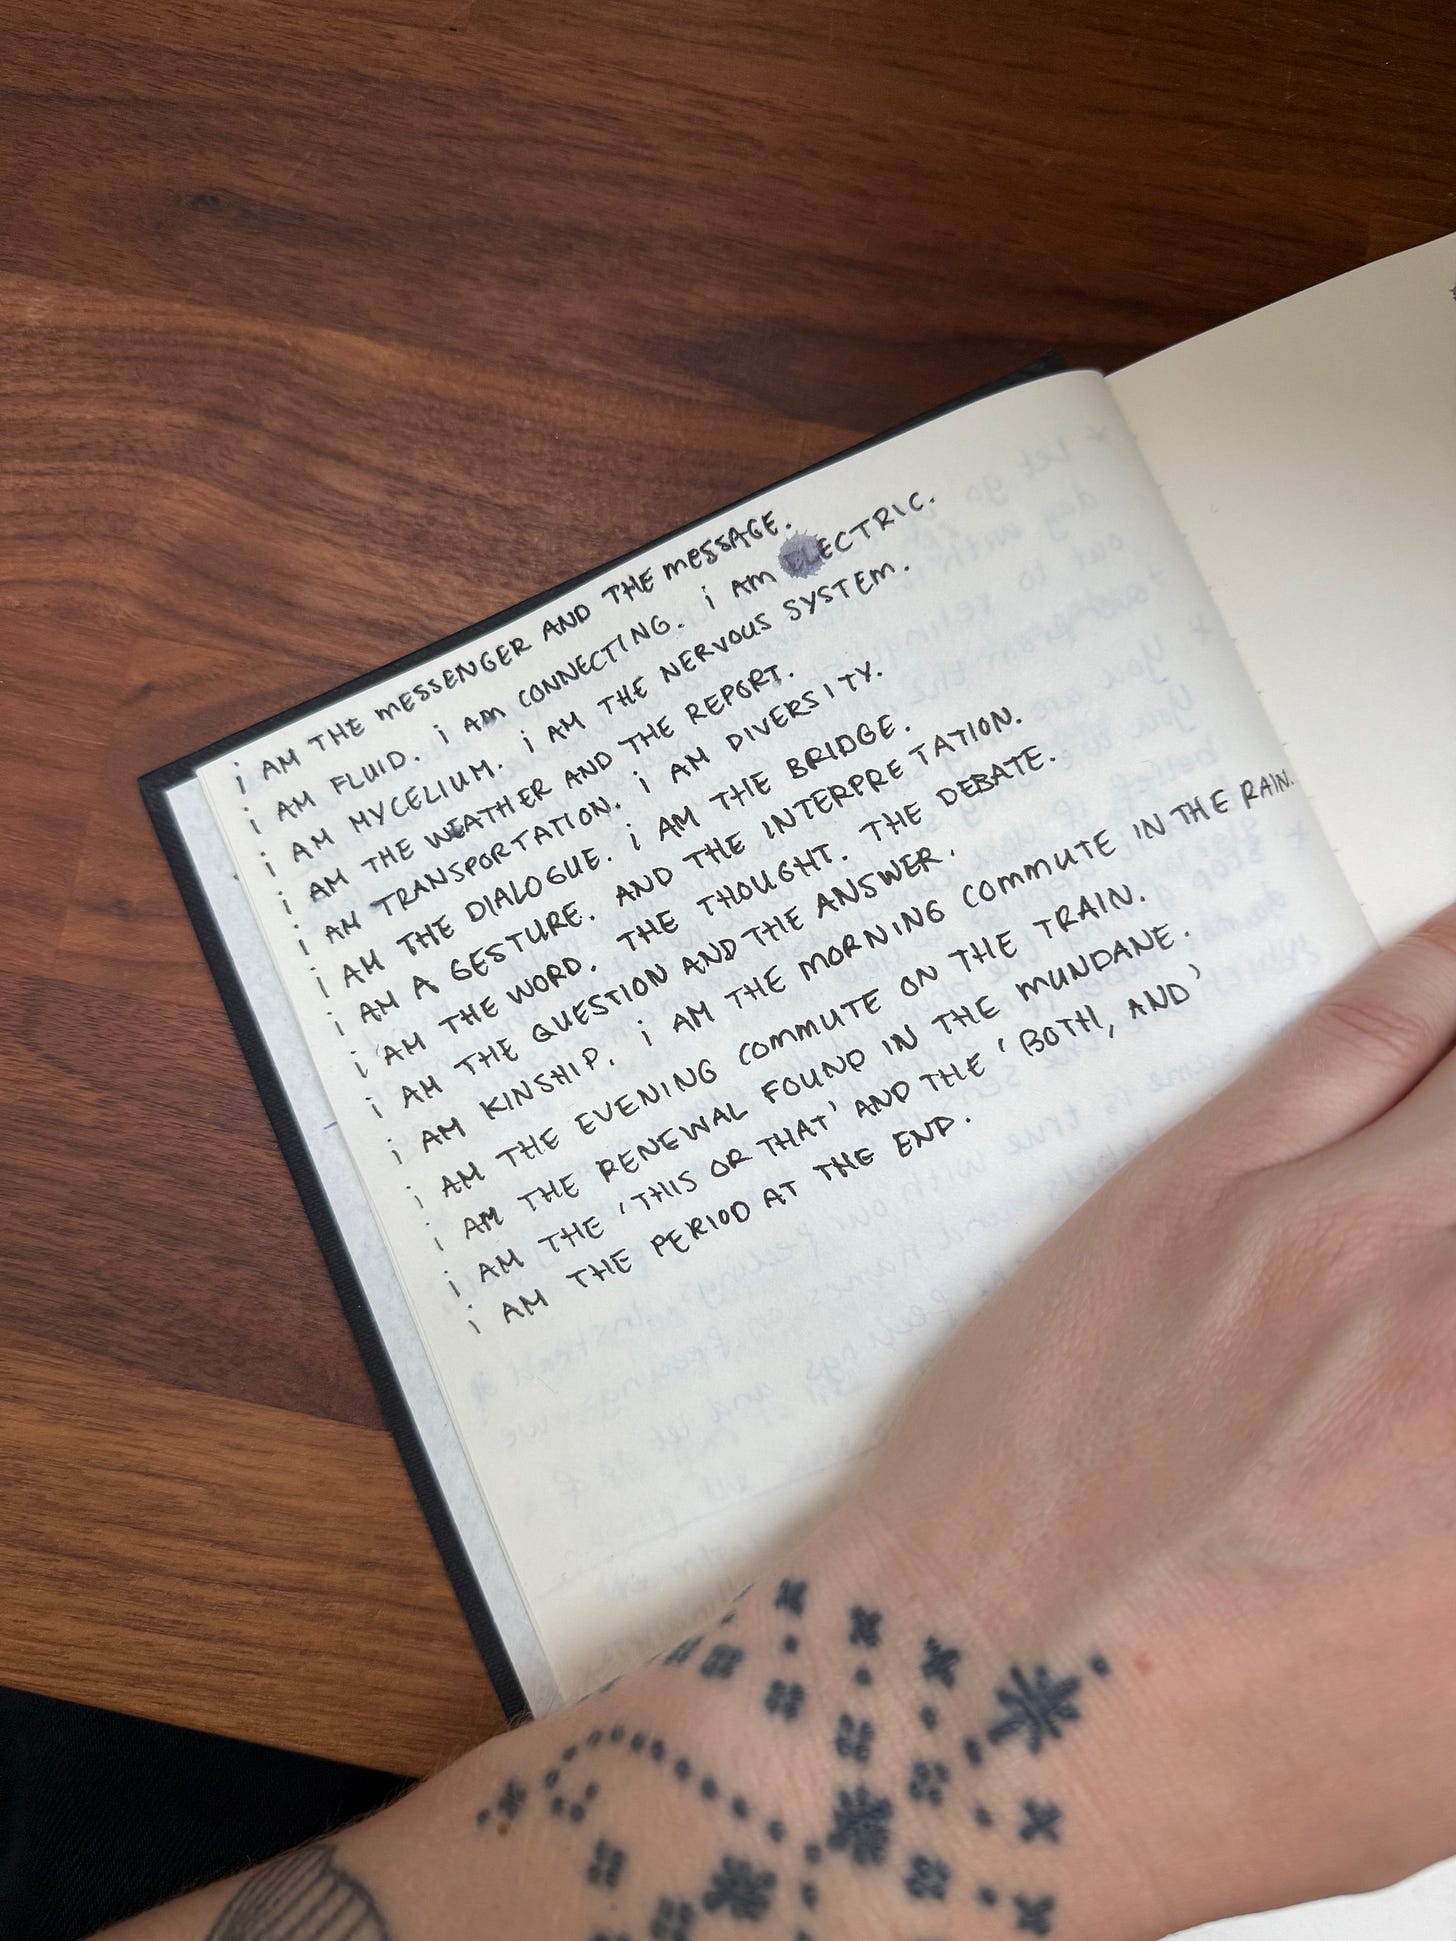 i AM THE MESSENGER AND THE MESSAGE.
i AM FLUID. i AM CONNECTING. i AM ELECTRIC.
i AM MYCELIUM. i AM THE NERVOUS SYSTEM.
i AM THE WEATHER AND THE REPORT.
i AM TRANSPORTATION. i AM DIVERSITY.
i AM THE DIALOGUE. i AM THE BRIDGE.
i AM A GESTURE. AND THE INTERPRETATION.
i AM THE WORD. THE THOUGHT. THE DEBATE.
i AM THE QUESTION AND THE ANSWER.
i AM KINSHIP. i AM THE MORNING COMMUTE IN THE RAIN.
i AM THE EVENING COMMUTE ON THE TRAIN.
i AM THE RENEWAL FOUND IN THE MUNDANE.
i AM THE 'THIS OR THAT' AND THE 'BOTH, AND'
i AM THE PERIOD AT THE END.